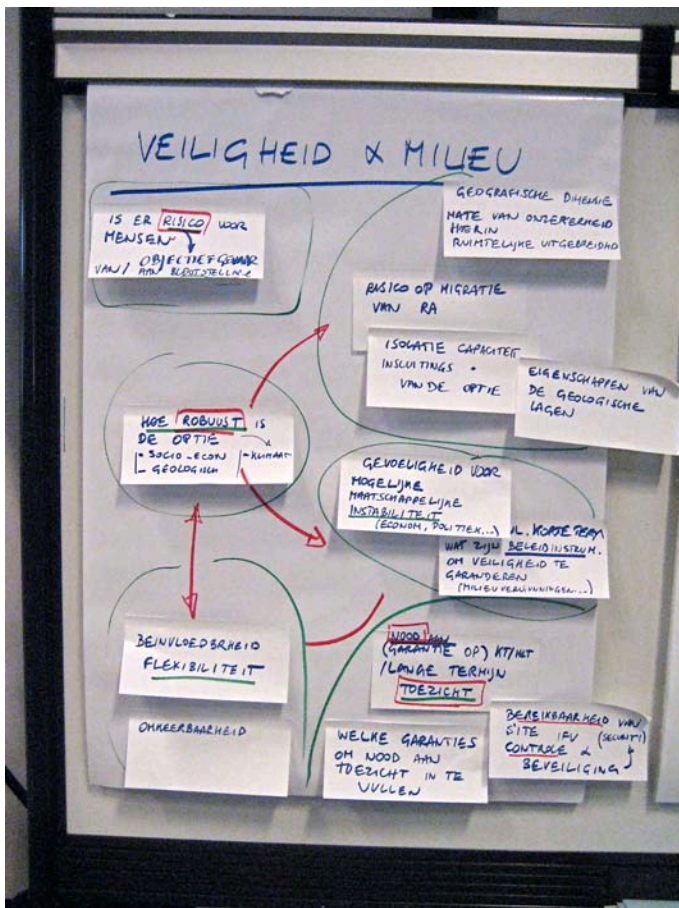 VEILIGHEID & MILIEU
IS ER RISICO VOOR
MENSEN
OBJECTIEF GEVAAR
VAN / AAN BLOOTSTELLING
GEOGRAFISCHE DIMENSIE
MATE VAN ONZEKERHEID
HIERIN
RUIMTELIJKE UITGEBREIDHEID
RISICO OP MIGRATIE
VAN RA
ISOLATIE CAPACITEIT
INSLUITINGS "
VAN DE OPTIE
EIGENSCHAPPEN VAN
DE GEOLOGISCHE
LAGEN
HOE ROBUUST IS
DE OPTIE
- SOCIO-ECON
- GEOLOGISCH
- KLIMAAT
GEVOELIGHEID VOOR
MOGELIJKE
MAATSCHAPPELIJKE
INSTABILITEIT
(ECONOM, POLITIEK...)
KORTE TERM
WAT ZIJN BELEIDINSTRUM.
OM VEILIGHEID TE
GARANDEREN
(MILIEUVERGUNNINGEN...)
BEINVLOEDBRHEID
FLEXIBILITEIT
OMKEERBAARHEID
NOOD AAN
(GARANTIE OP) KT/MT
/LANGE TERMIJN
TOEZICHT
WELKE GARANTIES
OM NOOD AAN
TOEZICHT IN TE
VULLEN
BEREIKBAARHEID VAN
SITE IFV (SECURITY)
CONTROLE &
BEVEILIGING